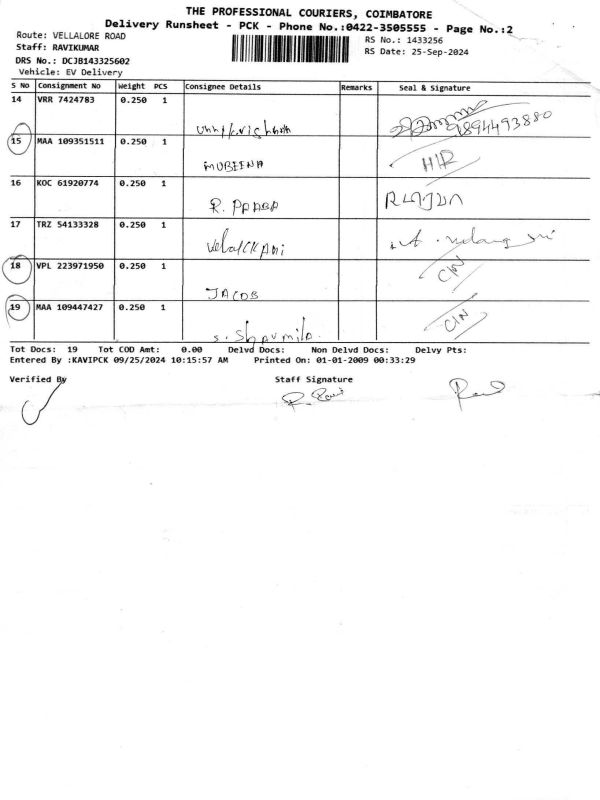 THE PROFESSIONAL COURIERS, COIMBATORE
Delivery Runsheet - PCK - Phone No.:0422-3505555 - Page No.:2
Route: VELLALORE ROAD
RS No.: 1433256
Staff: RAVIKUMAR
RS Date: 25-Sep-2024
DRS No.: DCJB143325602
Vehicle: EV Delivery
S No Consignment No Weight PCS Consignee Details Remarks Seal & Signature
14 VRR 7424783 0.250 1
9894493880
15 MAA 109351511 0.250 1
MUBEENA
16 KOC 61920774 0.250 1
R. PPABA
17 TRZ 54133328 0.250 1
18 VPL 223971950 0.250 1 C/N
JACOB
19 MAA 109447427 0.250 1 C/N
Tot Docs: 19 Tot COD Amt: 0.00 Delvd Docs: Non Delvd Docs: Delvy Pts:
Entered By :KAVIPCK 09/25/2024 10:15:57 AM Printed On: 01-01-2009 00:33:29
Verified By Staff Signature